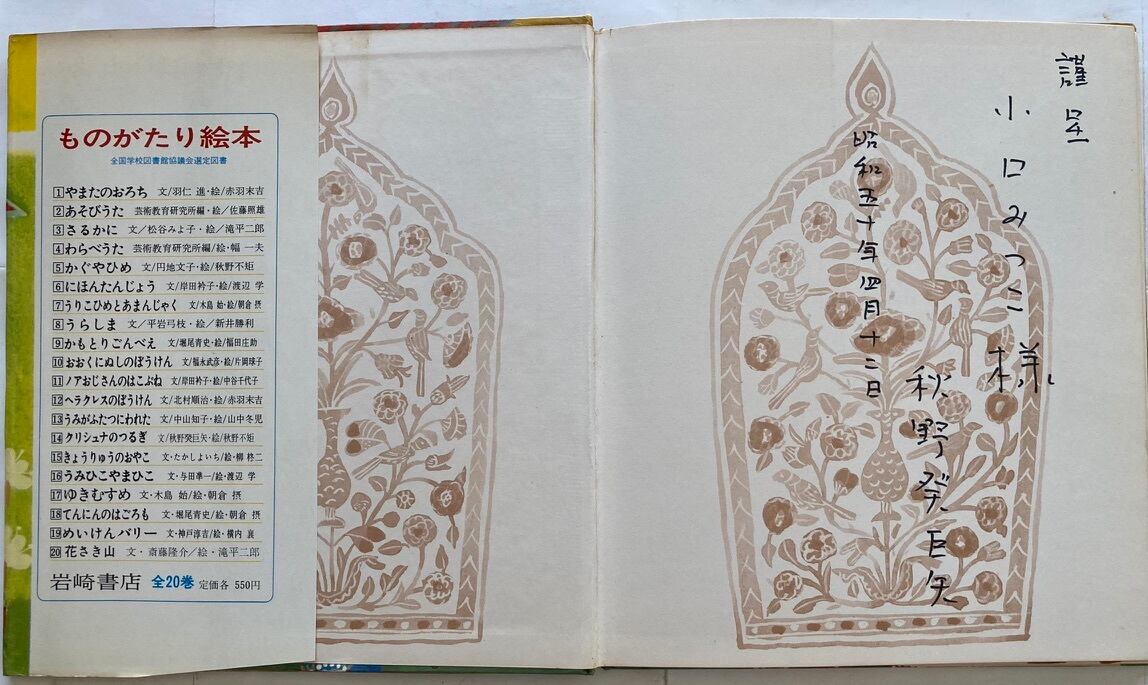 ものがたり絵本
全国学校図書館協議会選定図書
1 やまたのおろち 文/羽仁 進・絵/赤羽末吉
2 あそびうた 芸術教育研究所編・絵/佐藤照雄
3 さるかに 文/松谷みよ子・絵/滝平二郎
4 わらべうた 芸術教育研究所編/絵・幅 一夫
5 かぐやひめ 文/円地文子・絵/秋野不矩
6 にほんたんじょう 文/岸田衿子・絵/渡辺 学
7 うりこひめとあまんじゃく 文/木島 始・絵/朝倉 摂
8 うらしま 文/平岩弓枝・絵/新井勝利
9 かもとりごんべえ 文/堀尾青史・絵/福田庄助
10 おおくにぬしのぼうけん 文/福永武彦・絵/片岡球子
11 ノアおじさんのはこぶね 文/岸田衿子・絵/中谷千代子
12 ヘラクレスのぼうけん 文/北村順治・絵/赤羽末吉
13 うみがふたつにわれた 文/中山知子・絵/山中冬児
14 クリシュナのつるぎ 文/秋野癸巨矢・絵/秋野不矩
15 きょうりゅうのおやこ 文・たかしよいち/絵・柳 柊二
16 うみひこやまひこ 文・与田凖一/絵・渡辺 学
17 ゆきむすめ 文・木島 始/絵・朝倉 摂
18 てんにんのはごろも 文・堀尾青史/絵・朝倉 摂
19 めいけんバリー 文・神戸淳吉/絵・横内 襄
20 花さき山 文・斎藤隆介/絵・滝平二郎
岩崎書店 全20巻 定価各 550円
謹呈
小口みつこ様
昭和五十年四月十二日
秋野癸巨矢